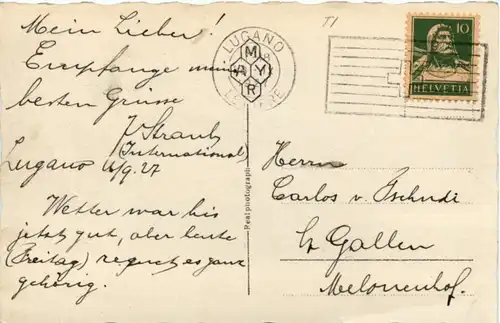 Mein Lieber!
Empfange meine
besten Grüsse
J. Straub
(International)
Lugano 4/9.27
Wetter war bis
jetzt gut, aber heute
(Freitag) regnet es ganz
gehörig.
T1
LUGANO
MAYR
HELVETIA
10
Real photograph
Herrn
Carlos v. Tschudi
St Gallen
Melonenhof.